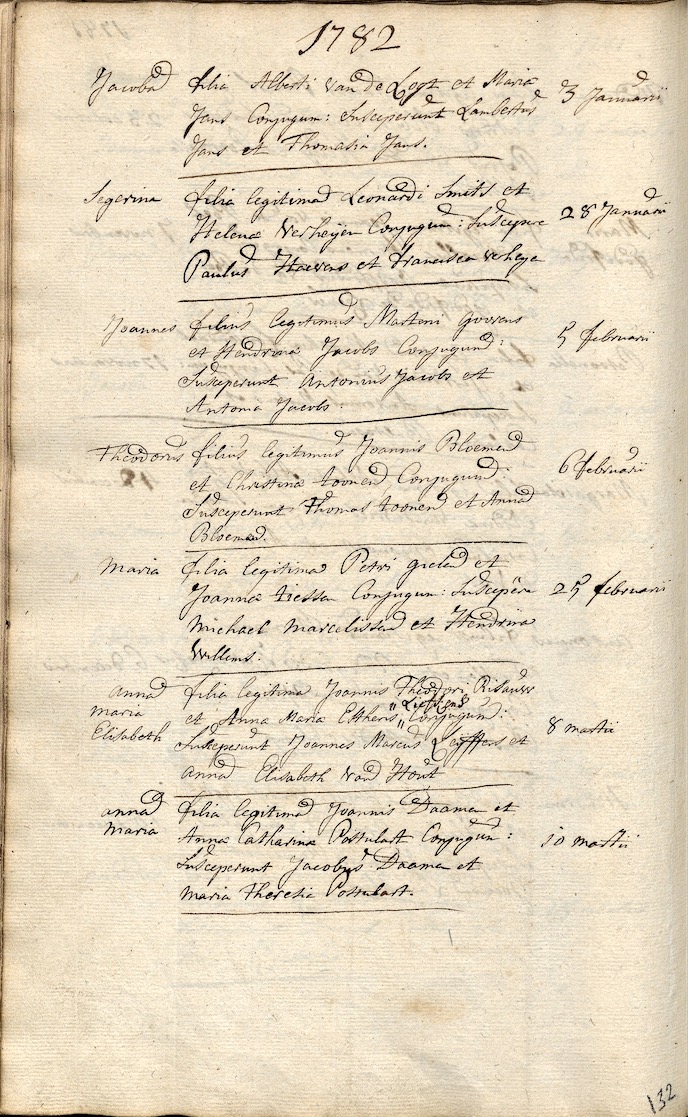 1782
Jacoba filia Alberti van de Logt et Maria 3 Januarii
Jans Conjugum: Susceperunt Lambertus
Jans et Thomasia Jans.
Segerina filia legitima Leonardi Smits et
Helena Verheijen Conjugum: Suscepere 28 Januarii
Paulus et Francisca Verheye
Joannes filius legitimus Martini Goorens 5 februarii
et Hendrina Jacobs Conjugum:
Susceperunt Antonius Jacobs et
Antonia Jacobs.
Theodorus filius legitimus Joannis Bloemen 6 februarii
et Christina toonen Conjugum:
Susceperunt Thomas toonen et Anna
Bloemen.
Maria filia legitima Petri gielen et
Joanna tiessen Conjugum: Suscepere 25 februarii
Michael Marcelissen et Hendrina
Willems.
anna filia legitima Joannis Theodori
maria et Anna Maria Esthers " " Conjugum:
Elisabeth Susceperunt Joannes Marcus Leyffers et 8 martii
anna Elisabeth Van Hout
anna filia legitima Joannis Daamen et
maria Anna Catharina Postulart Conjugum: 10 martii
Susceperunt Jacobus Daamen et
Maria Theresia Postulart.
132